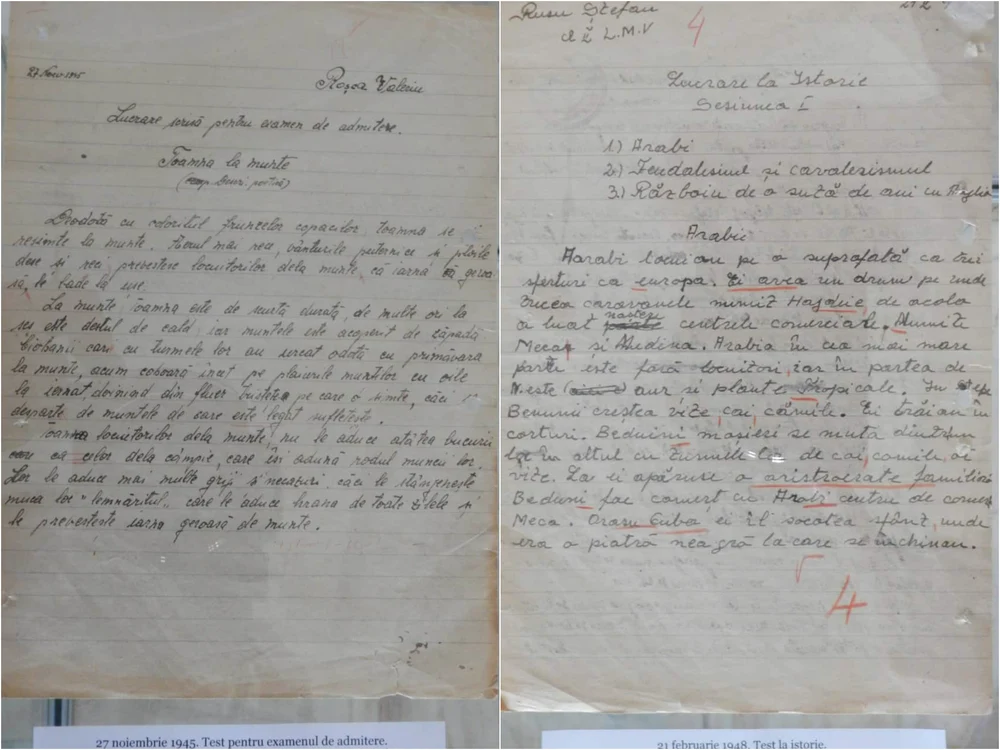 27 Noiv 1945
Roșca Valeriu
Lucrare scrisă pentru examen de admitere.
Toamna la munte
(comp. Descri. poetică)
Deodată cu odoritul frunzelor copacilor, toamna se
resimte la munte. Aerul mai rece, vânturile puternice și ploile
dese și reci prevestere locuitorilor dela munte, că iarna geroa-
să, le bade la ușe.
La munte, toamna este de scurtă durată, de multe ori la
șes este destul de cald iar muntele este acoperit de zăpadă
Ciobanii cari cu turmele lor au urcat odată cu primăvara
la munte, acum coboară încet pe plaiurile munților cu oile
la iernat doinind din fluer tristețea pe care o simte, căci
departe de muntele de care este legat sufletește.
Toamna locuitorilor dela munte, nu le aduce atâtea bucurii
ca celor dela câmpie, care își adună rodul muncii lor.
Lor le aduce mai multe griji și necazuri căci le stânjenește
munca lor "lemnăritul" care le aduce hrana de toate zilele și
le prevestește iarna geroasă de munte.
27 noiembrie 1945. Test pentru examenul de admitere.
Rusu Ștefan
cl II L.M.V
4
Lucrare la Istorie
Sesiunea I
1.) Arabi
2.) Feudalismul și cavalerismul
3.) Războiu de o sută de ani cu Anglia
Arabii
Aarabi locuiau pe o suprafată ca trei
sferturi ca europa. Ei avea un drum pe unde
trecea caravanele mimit Hasdeie, de acolo
a luat nastere centrele comerciale. Numite
Meca și Medina. Arabia în cea mai mare
parte este fară locuitori, iar în partea de
Veste aur si plante tropicale. In
Benunii creștea vite cai, cămile. Ei trăiau în
corturi. Beduini masieri se muta dintrun
loc în altul cu turmele lor de cai, camile, oi
vite. La ei apăruse o aristrocrate familii
Beduni fac comert cu Arabi centru de comert
Meca. Orasu Cuba ei îl socotea sfânt, unde
era o piatră neagră la care se închinau.
4
21 februarie 1948. Test la istorie.